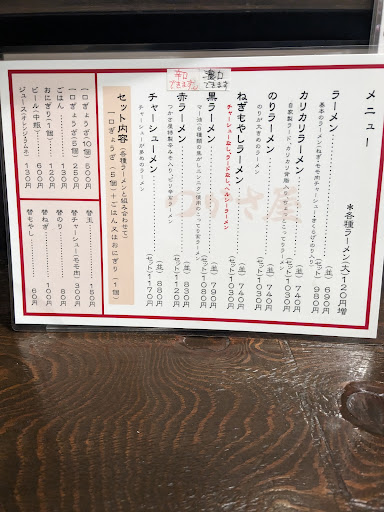 メニュー
*各種ラーメン(大)120円増
ラーメン (並)690円
(セット)980円
基本のラーメン・ねぎ・モモ肉チャーシュー・きくらげ・のり入り
カリカリラーメン (並)740円
(セット)1030円
のりラーメン (並)740円
(セット)1030円
のりが大きめののラーメン
ねぎもやしラーメン (並)740円
(セット)1030円
チャーシュー無し、ラード無し、ヘルシーラーメン
黒ラーメン (並)790円
(セット)1080円
赤ラーメン (並)830円
(セット)1120円
つかさ屋特製辛みそ入り、ピリ辛ラーメン
チャーシューメン (並)880円
(セット)1170円
チャーシューが多めのラーメン
辛口できます
濃口できます
つかさ屋
セット内容(各種ラーメンと組み合わせて)
一口ぎょうざ(5個)+ごはん又はおにぎり(1個)
一口ぎょうざ(10個)500円
一口ぎょうざ(5個)250円
ごはん 130円
おにぎり(1個)130円
ビール(中瓶)600円
ジュース(オレンジ・コーラ)130円
替玉 150円
替チャーシュー(モモ肉)300円
替のり 80円
替ねぎ 100円
替もやし 60円